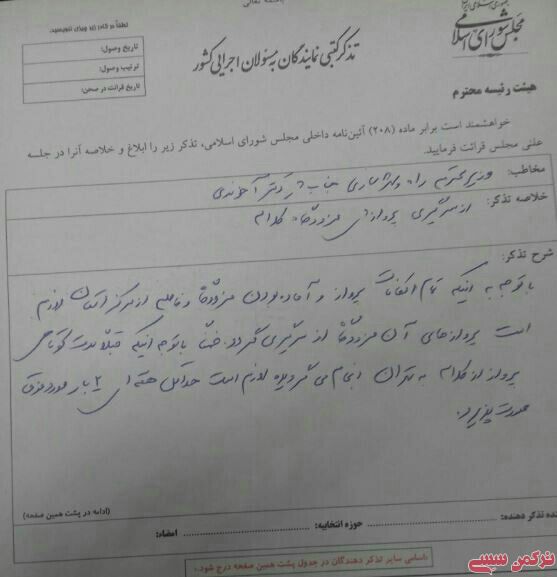 باسمه تعالی
مجلس شورای اسلامی
لطفاً در کادر زیر چیزی ننویسید.
تاریخ وصول:
ترتیب وصول:
تاریخ قرائت در صحن:
تذکر کتبی نمایندگان به مسئولان اجرایی کشور
هیئت رئیسه محترم
خواهشمند است برابر ماده (۲۰۸) آئین‌نامه داخلی مجلس شورای اسلامی، تذکر زیر را ابلاغ و خلاصه آنرا در جلسه
علنی مجلس قرائت فرمایید.
مخاطب: وزیر محترم راه و شهرسازی جناب دکتر آخوندی
خلاصه تذکر: از سرگیری پروازهای فرودگاه کلاله
شرح تذکر:
با توجه به اینکه تمام امکانات پرواز و آماده بودن فرودگاه و فاصله از مرکز استان لازم
است پروازهای آن فرودگاه از سرگیری گردد. ضمناً با توجه اینکه قبلاً مدت کوتاهی
پرواز از کلاله به تهران انجام می گردیده لازم است حداقل هفته ای ۲ بار مورد فوق
صورت پذیرد.
(ادامه در پشت همین صفحه)
نده تذکر دهنده: حوزه انتخابیه: امضاء:
«اسامی سایر تذکر دهندگان در جدول پشت همین صفحه درج شود.»
ترکمن سسی